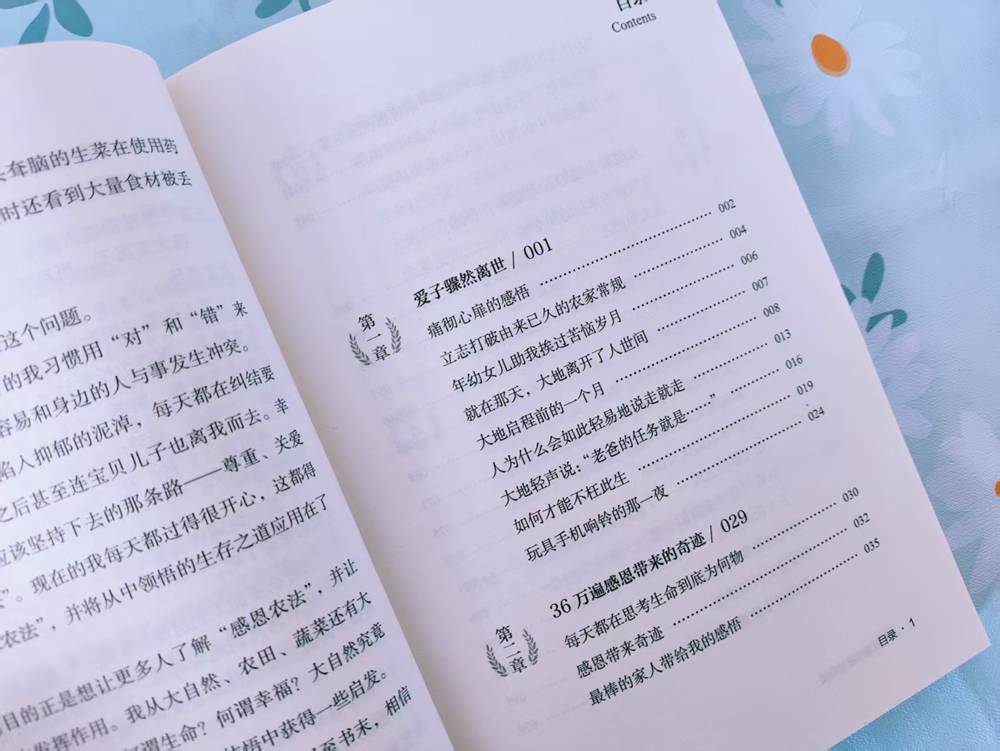 耷脑的生菜在使用药
时还看到大量食材被丢
这个问题。
的我习惯用“对”和“错”来
容易和身边的人与事发生冲突。
陷入抑郁的泥淖，每天都在纠结要
之后甚至连宝贝儿子也离我而去。幸
应该坚持下去的那条路——尊重、关爱
”。现在的我每天都过得很开心，这都得
农法”，并将从中领悟的生存之道应用在了
目的正是想让更多人了解“感恩农法”，并让
发挥作用。我从大自然、农田、蔬菜还有大
何谓生命？何谓幸福？大自然究竟
悟中获得一些启发。
至书末，相信
目录
Contents
第一章
爱子骤然离世 / 001
痛彻心扉的感悟 002
立志打破由来已久的农家常规 004
年幼女儿助我挨过苦恼岁月 006
就在那天，大地离开了人世间 007
大地启程前的一个月 008
人为什么会如此轻易地说走就走 013
大地轻声说：“老爸的任务就是……” 016
如何才能不枉此生 019
玩具手机响铃的那一夜 024
第二章
36 万遍感恩带来的奇迹 / 029
每天都在思考生命到底为何物 030
感恩带来奇迹 032
最棒的家人带给我的感悟 035
目录 · 1